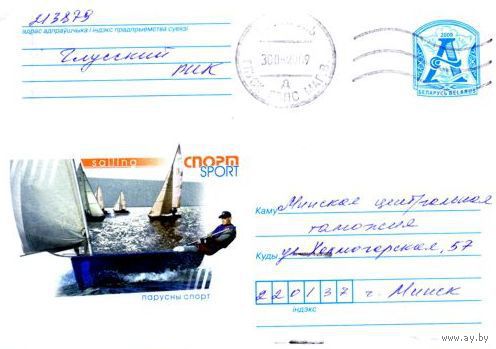 213879
адрас адпраўшчыка і індэкс прадпрыемства сувязі
Глусский
РИК
2009
А
БЕЛАРУСЬ BELARUS
sailing
СПОРТ
SPORT
парусны спорт
Каму Минская центральная
таможня
Куды ул. Холмогорская, 57
220137 г. Минск
індэкс
www.ay.by